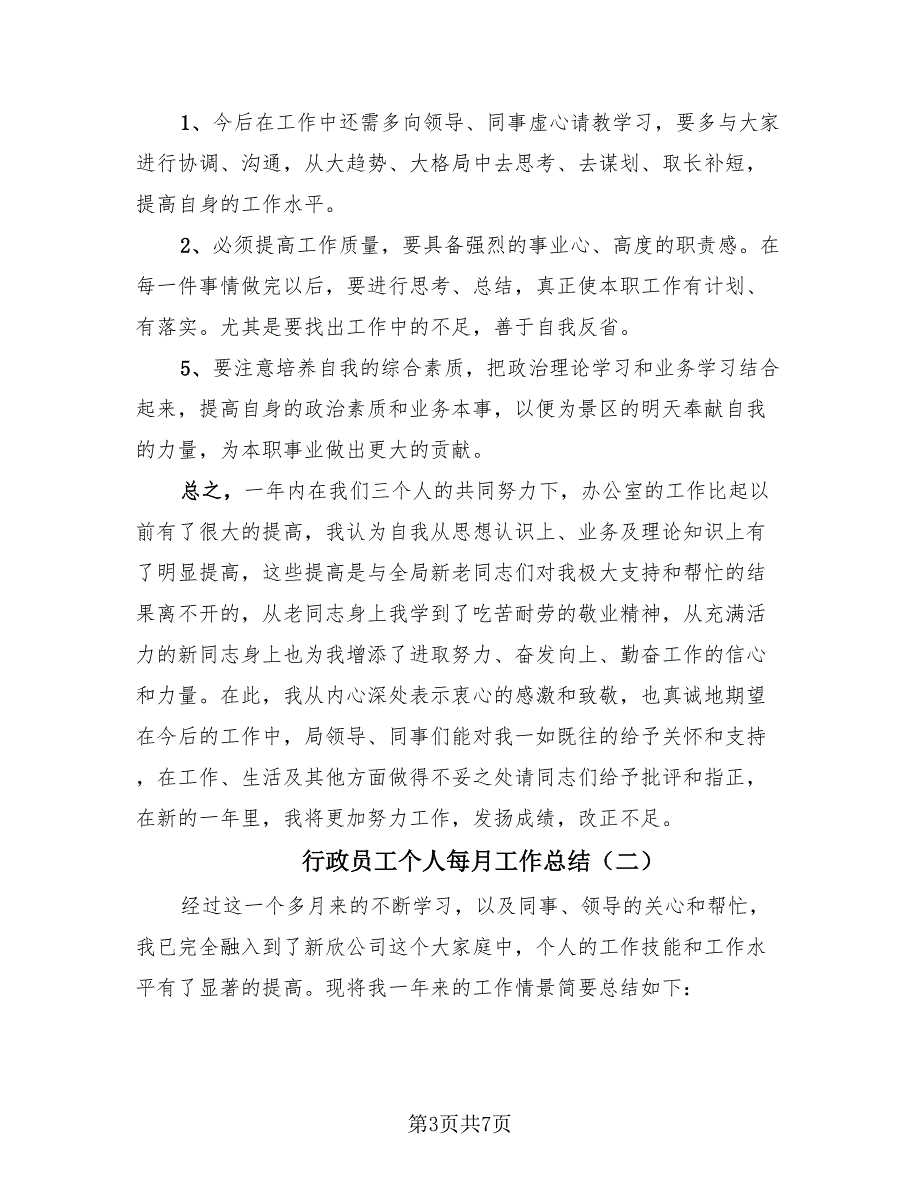 1、今后在工作中还需多向领导、同事虚心请教学习，要多与大家
进行协调、沟通，从大趋势、大格局中去思考、去谋划、取长补短，
提高自身的工作水平。
2、必须提高工作质量，要具备强烈的事业心、高度的职责感。在
每一件事情做完以后，要进行思考、总结，真正使本职工作有计划、
有落实。尤其是要找出工作中的不足，善于自我反省。
5、要注意培养自我的综合素质，把政治理论学习和业务学习结合
起来，提高自身的政治素质和业务本事，以便为景区的明天奉献自我
的力量，为本职事业做出更大的贡献。
总之，一年内在我们三个人的共同努力下，办公室的工作比起以
前有了很大的提高，我认为自我从思想认识上、业务及理论知识上有
了明显提高，这些提高是与全局新老同志们对我极大支持和帮忙的结
果离不开的，从老同志身上我学到了吃苦耐劳的敬业精神，从充满活
力的新同志身上也为我增添了进取努力、奋发向上、勤奋工作的信心
和力量。在此，我从内心深处表示衷心的感激和致敬，也真诚地期望
在今后的工作中，局领导、同事们能对我一如既往的给予关怀和支持
，在工作、生活及其他方面做得不妥之处请同志们给予批评和指正，
在新的一年里，我将更加努力工作，发扬成绩，改正不足。
行政员工个人每月工作总结（二）
经过这一个多月来的不断学习，以及同事、领导的关心和帮忙，
我已完全融入到了新欣公司这个大家庭中，个人的工作技能和工作水
平有了显著的提高。现将我一年来的工作情景简要总结如下：
第3页共7页